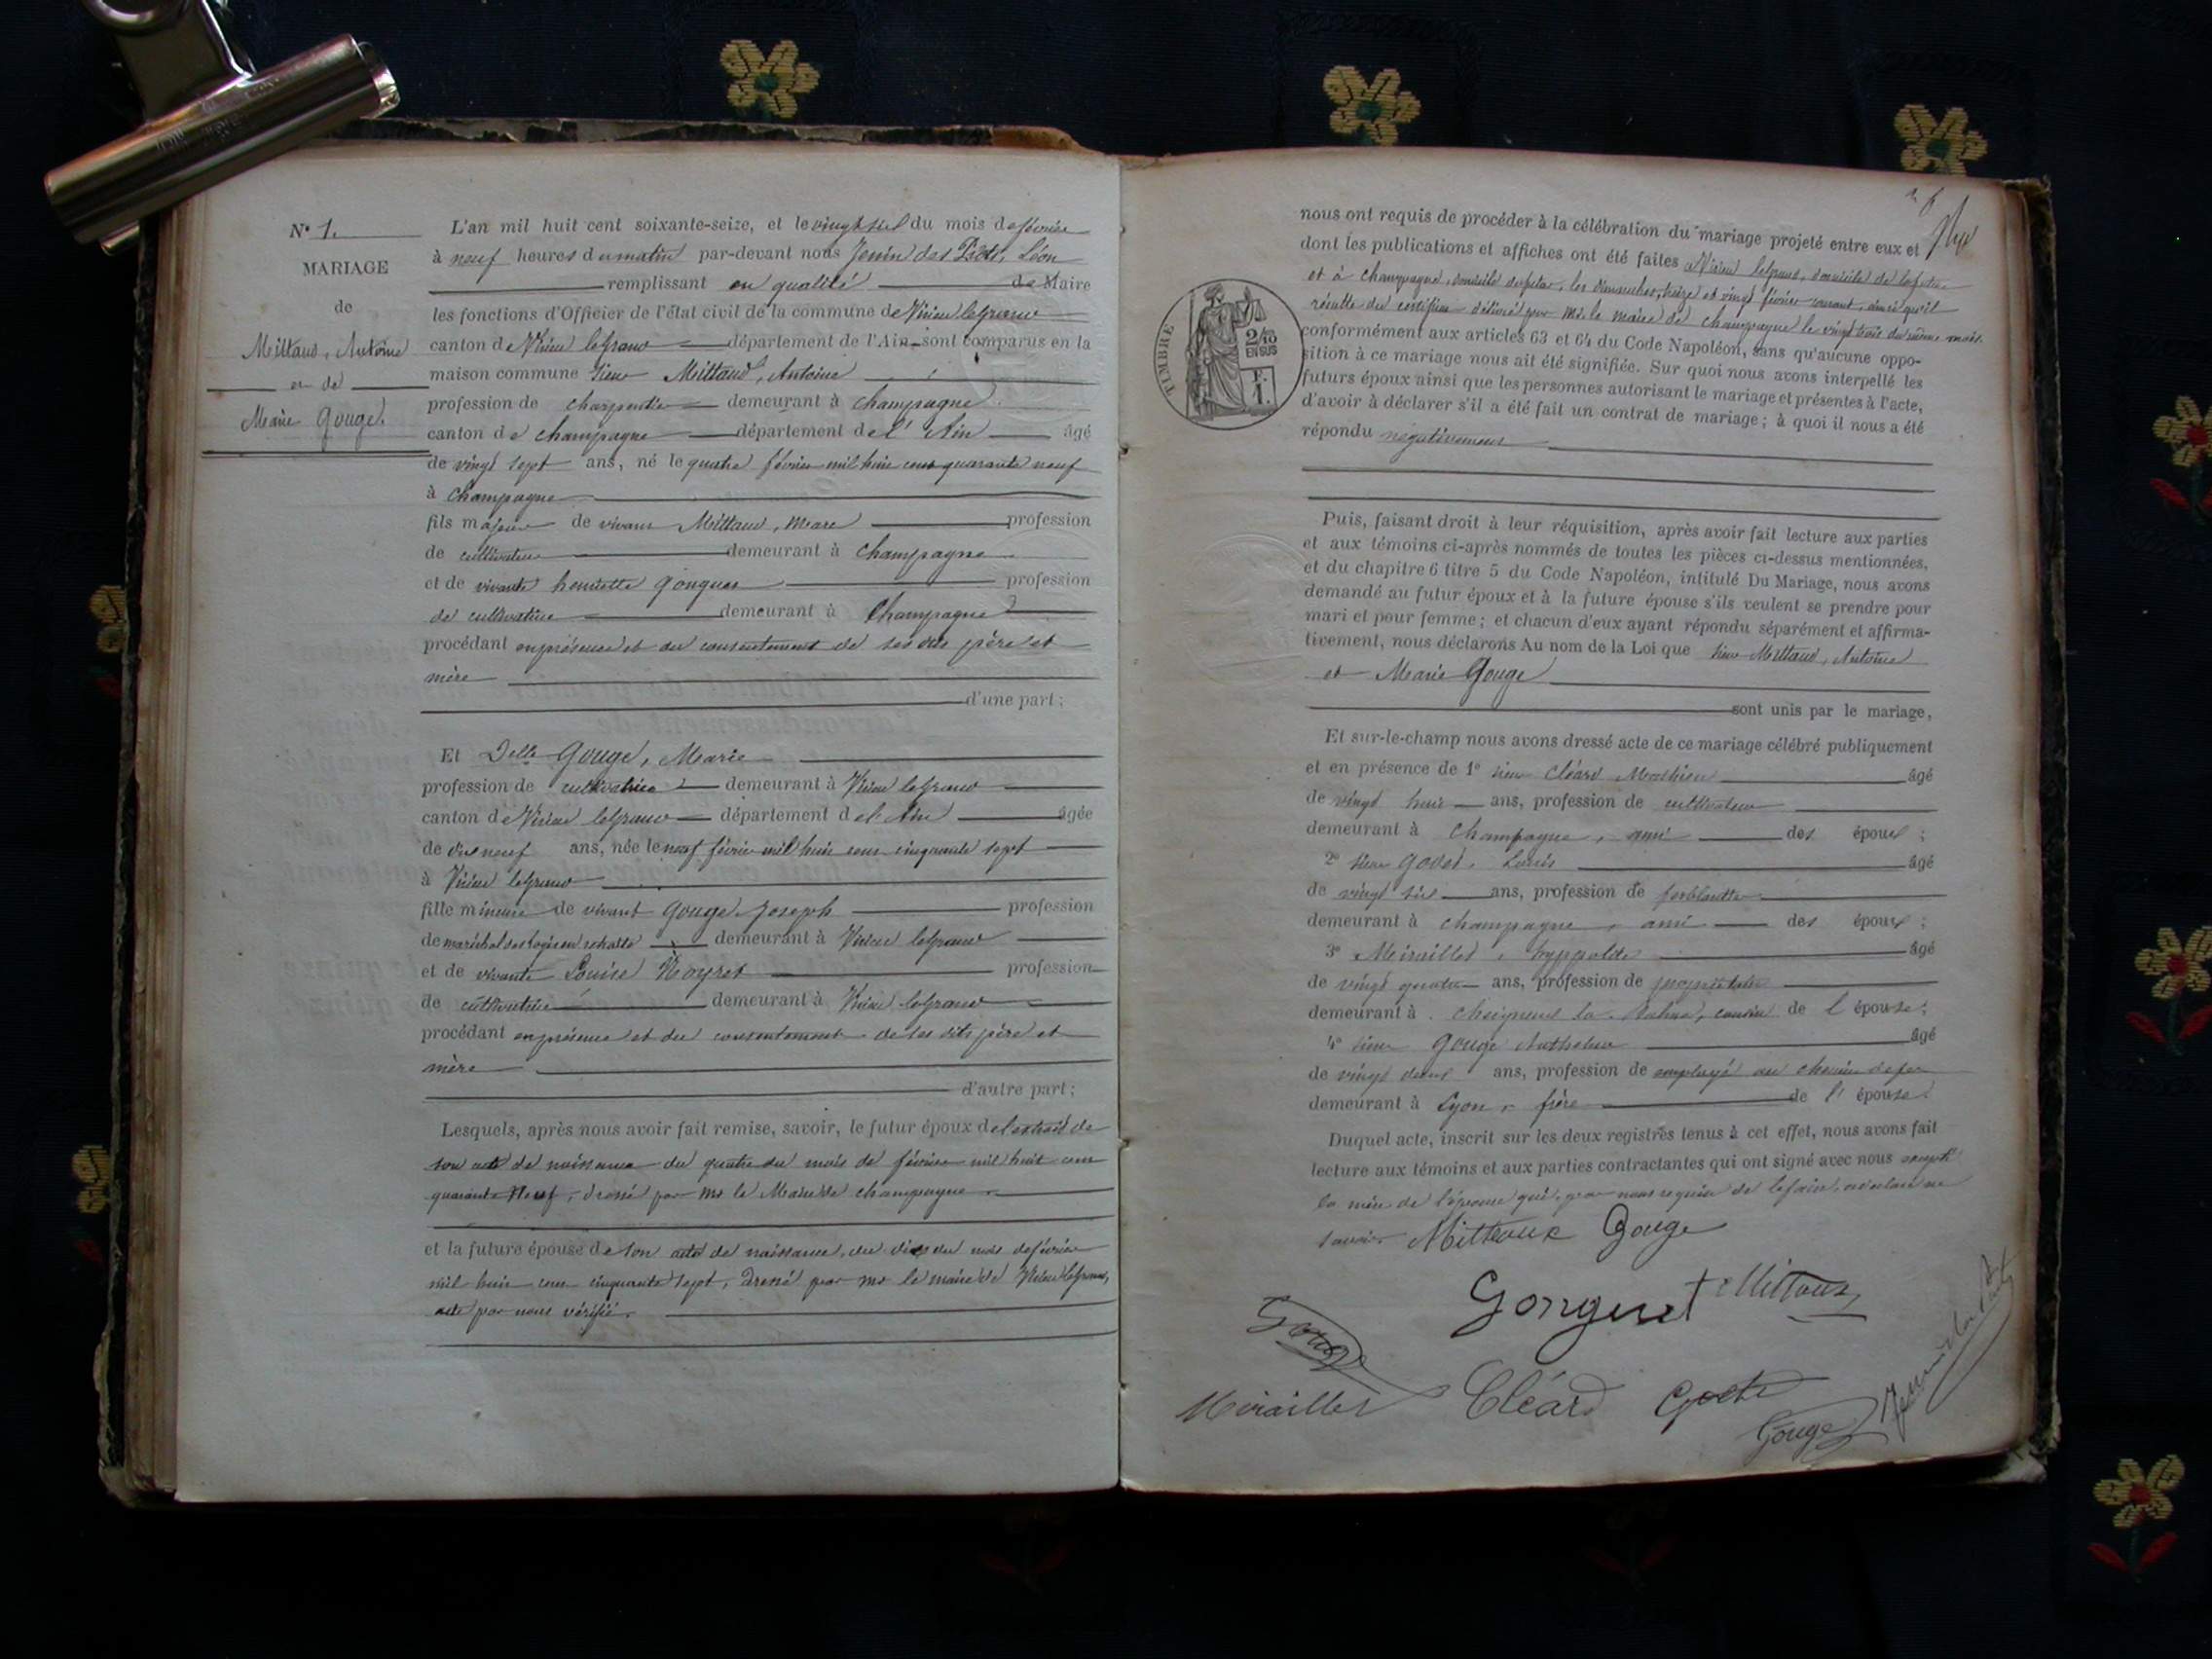 N° 1.
MARIAGE
de
Mittaud, Antoine
et de
Marie Gouge.
L'an mil huit cent soixante-seize, et le vingt six du mois de février
à neuf heures du matin par-devant nous Jenin des Prost, Léon
remplissant en qualité de Maire
les fonctions d'Officier de l'état civil de la commune de Virieu le grand
canton de Virieu le grand département de l'Ain sont comparus en la
maison commune sieur Mittaud, Antoine
profession de charpentier demeurant à Champagne
canton de Champagne département de l'Ain âgé
de vingt sept ans, né le quatre février mil huit cent quarante neuf
à Champagne
fils majeur de vivant Mittaud, Marc profession
de cultivateur demeurant à Champagne
et de vivante henriette Gonguet profession
de cultivatrice demeurant à Champagne
procédant en présence et du consentement de ses dits père et
mère
d'une part;
Et Delle Gouge, Marie
profession de cultivatrice demeurant à Virieu le grand
canton de Virieu le grand département de l'Ain âgée
de dix neuf ans, née le neuf février mil huit cent cinquante sept
à Virieu le grand
fille mineure de vivant Gouge Joseph profession
de maréchal des logis en retraite demeurant à Virieu le grand
et de vivante Louise profession
de cultivatrice demeurant à Virieu le grand
procédant en présence et du consentement de ses dits père et
mère
d'autre part;
Lesquels, après nous avoir fait remise, savoir, le futur époux de l'extrait de
son acte de naissance du quatre du mois de février mil huit cent
quarante neuf, dressé par mr le Maire de Champagne
et la future épouse de son acte de naissance, du dix du mois de février
mil huit cent cinquante sept, dressé par mr le maire de Virieu le grand,
acte par nous vérifié.
nous ont requis de procéder à la célébration du mariage projeté entre eux et
dont les publications et affiches ont été faites à Virieu le grand, domicile de la future
et à Champagne, domicile du futur, les dimanches, treize et vingt février courant, ainsi qu'il
résulte du certificat délivré par Mr le maire de Champagne le vingt trois du même mois.
TIMBRE
2/10
EN SUS
F.
1.
conformément aux articles 63 et 64 du Code Napoléon, sans qu'aucune oppo-
sition à ce mariage nous ait été signifiée. Sur quoi nous avons interpellé les
futurs époux ainsi que les personnes autorisant le mariage et présentes à l'acte,
d'avoir à déclarer s'il a été fait un contrat de mariage; à quoi il nous a été
répondu négativement
Puis, faisant droit à leur réquisition, après avoir fait lecture aux parties
et aux témoins ci-après nommés de toutes les pièces ci-dessus mentionnées,
et du chapitre 6 titre 5 du Code Napoléon, intitulé Du Mariage, nous avons
demandé au futur époux et à la future épouse s'ils veulent se prendre pour
mari et pour femme; et chacun d'eux ayant répondu séparément et affirma-
tivement, nous déclarons Au nom de la Loi que sieur Mittaud, Antoine
et Marie Gouge
sont unis par le mariage,
Et sur-le-champ nous avons dressé acte de ce mariage célébré publiquement
et en présence de 1° sieur Cléard Mathieu âgé
de vingt huit ans, profession de cultivateur
demeurant à Champagne, ami des époux;
2° sieur Godet, Louis âgé
de vingt six ans, profession de ferblantier
demeurant à Champagne, ami des époux;
3° Mirailles, âgé
de vingt quatre ans, profession de propriétaire
demeurant à Cheignieu la Balme, cousin de l'épouse;
4° sieur Gouge Anthelme âgé
de vingt deux ans, profession de employé au chemin de fer
demeurant à Lyon, frère de l'épouse.
Duquel acte, inscrit sur les deux registres tenus à cet effet, nous avons fait
lecture aux témoins et aux parties contractantes qui ont signé avec nous excepté
la mère de l'épouse qui, par nous requise de le faire, a déclaré ne
savoir. Mitteaux Gouge
Gonguet Mittaux
Gouge
Miraillet Cléard Godet
Gouge